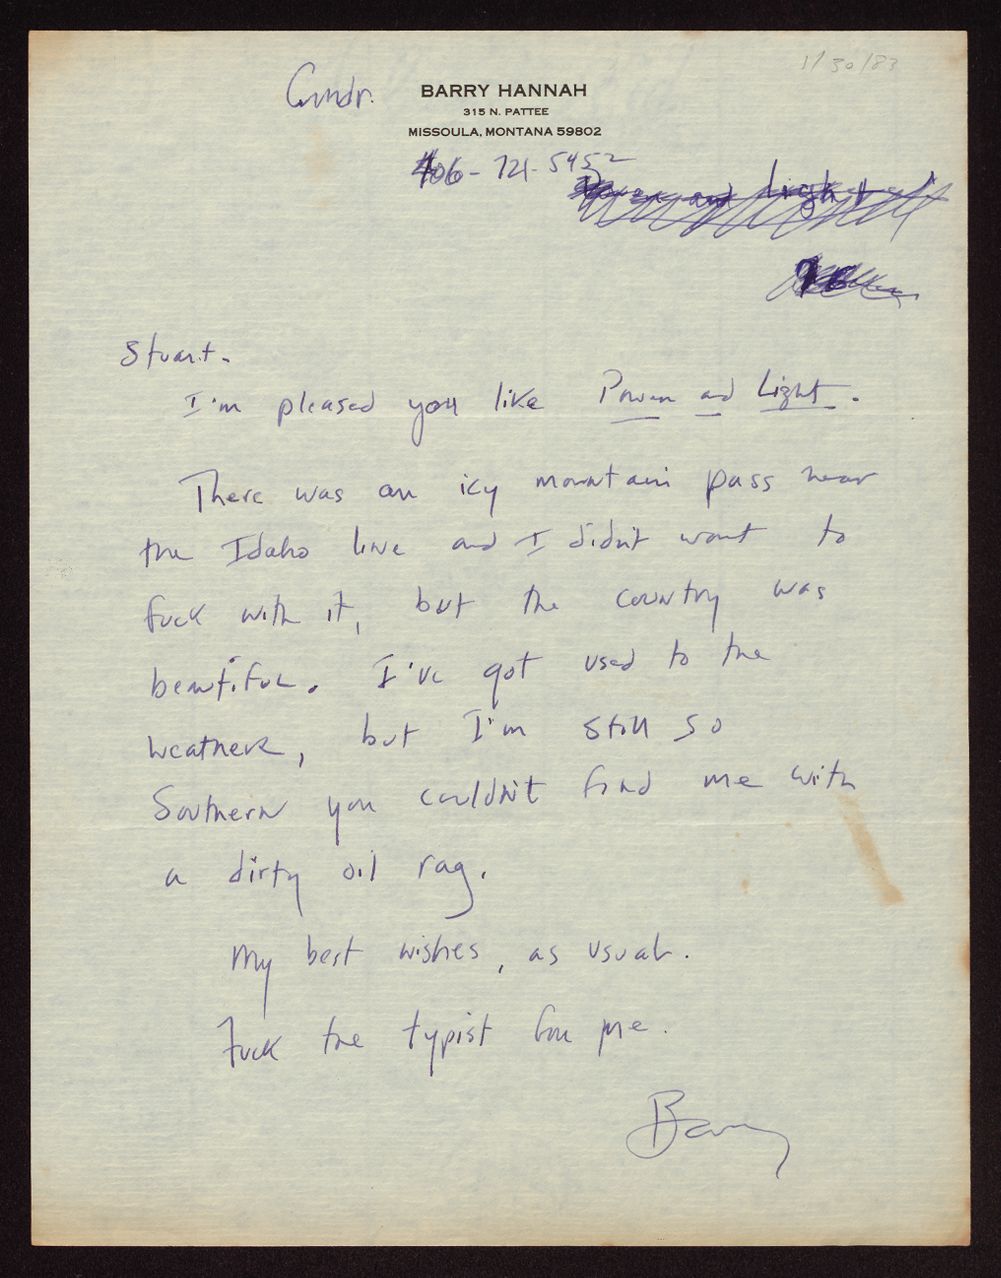 1/30/83
Cmdr.
BARRY HANNAH
315 N. PATTEE
MISSOULA, MONTANA 59802
406-721-5452
Power and Light
Stuart.
I'm pleased you like Power and Light.
There was an icy mountain pass near
the Idaho line and I didn't want to
fuck with it, but the country was
beautiful. I've got used to the
weather, but I'm still so
Southern you couldn't find me with
a dirty oil rag.
My best wishes, as usual.
Fuck the typist for me.
Barry